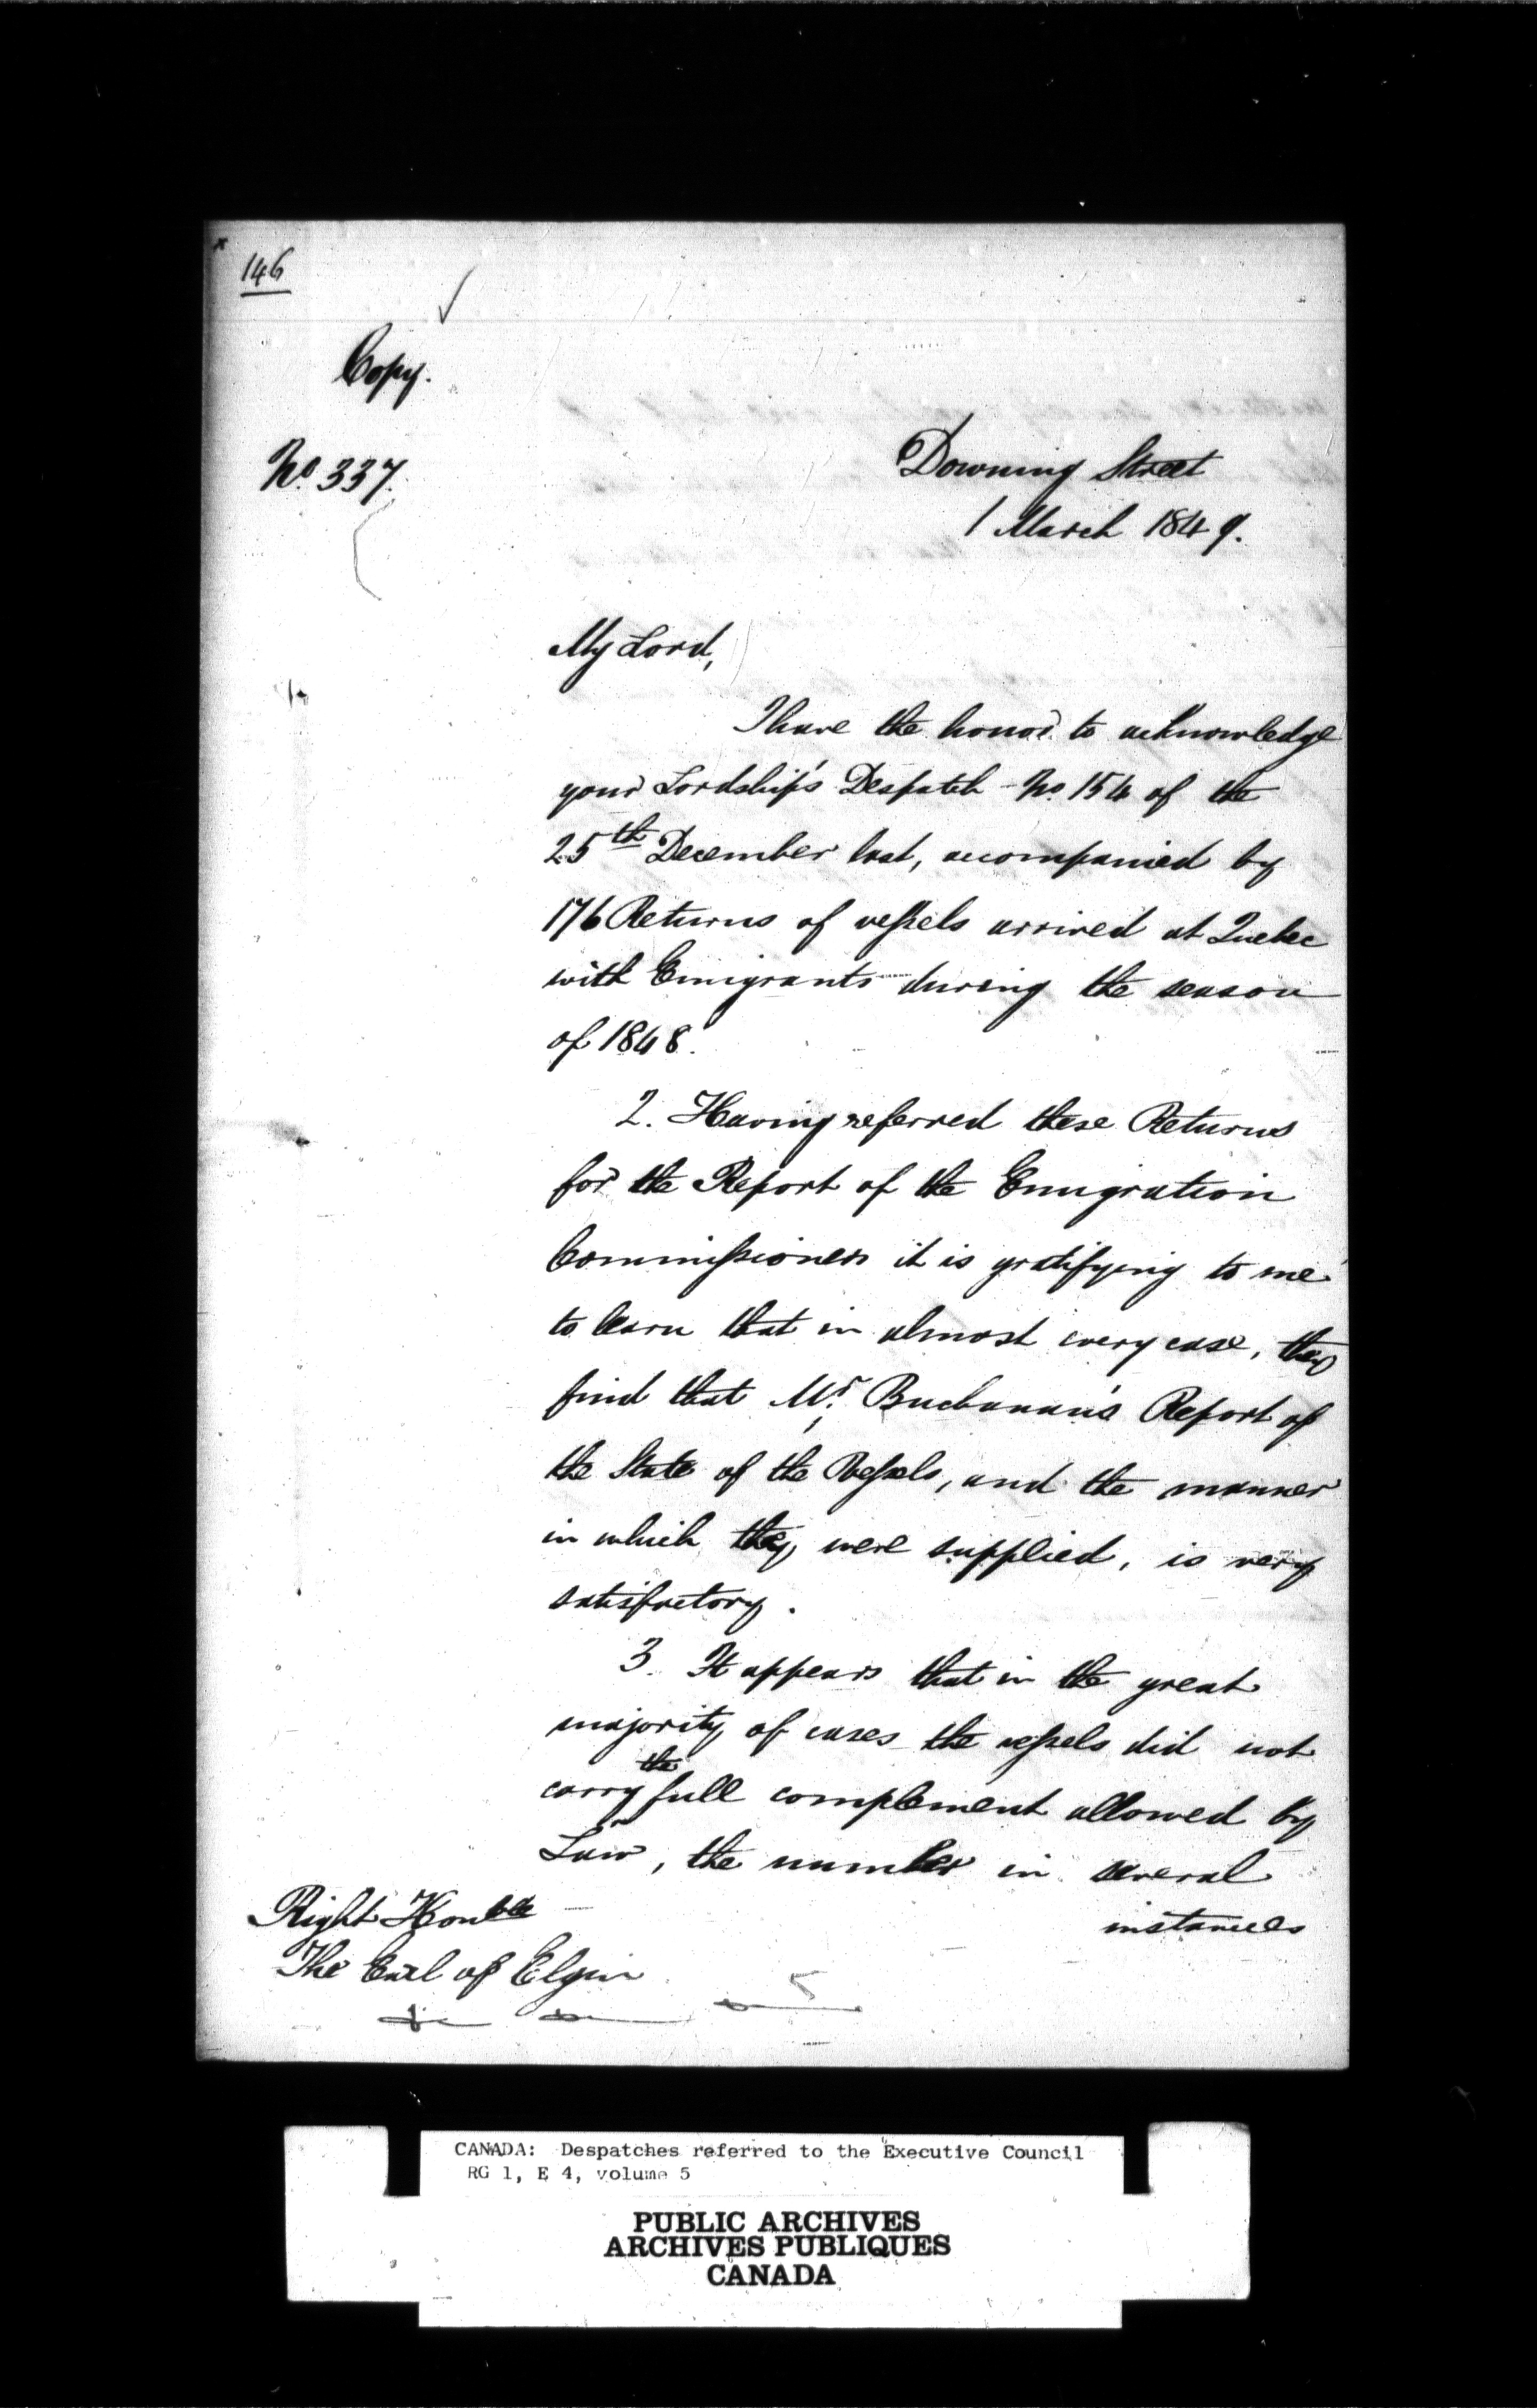 146
Copy.
No. 337.
Downing Street
1 March 1849.
My Lord,
I have the honor to acknowledge
your Lordship's Despatch No. 154 of the
25th December last, accompanied by
176 Returns of vessels arrived at Quebec
with Emigrants during the season
of 1848.
2. Having referred these Returns
for the Report of the Emigration
Commissioners it is gratifying to me
to learn that in almost every case, they
find that Mr. Buchanan's Report of
the State of the Vessels, and the manner
in which they were supplied, is very
satisfactory.
3. It appears that in the great
majority of cases the vessels did not
carry the full complement allowed by
Law, the number in several
instances
Right Honble
The Earl of Elgin
CANADA: Despatches referred to the Executive Council
RG 1, E 4, volume 5
PUBLIC ARCHIVES
ARCHIVES PUBLIQUES
CANADA